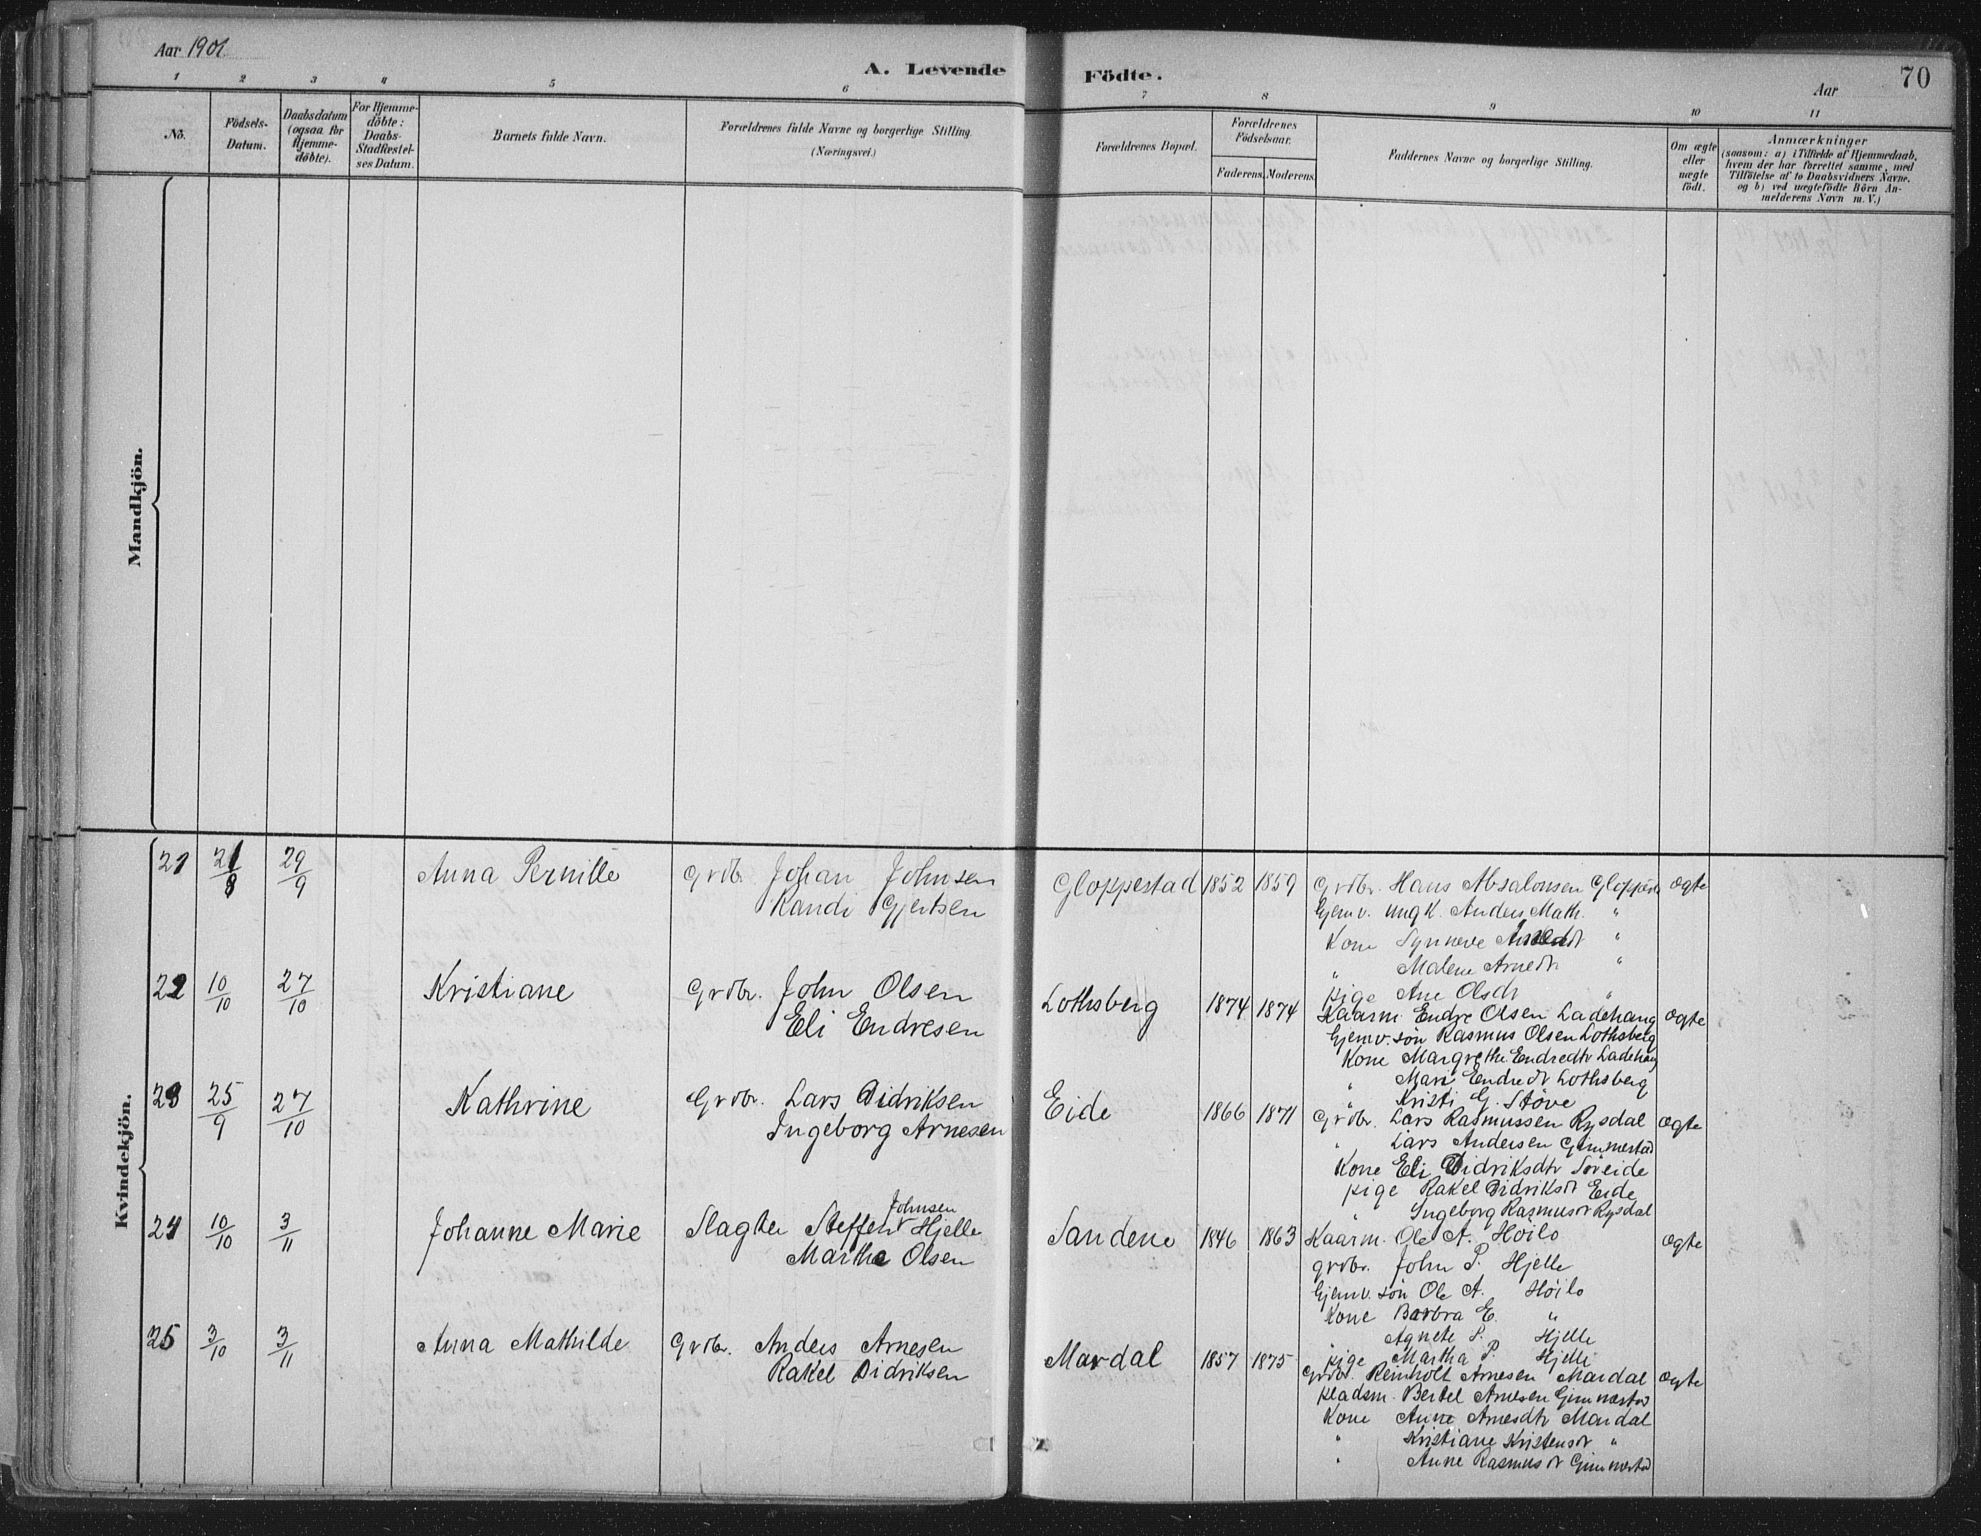 Aar 1901.
A. Levende Födte.
Aar
70
1 2 3 4 5 6 7 8 9 10 11
No.
Födsels-Datum.
Daabsdatum (ogsaa for Hjemme-döbte).
For Hjemme-döbte: Daabs-Stadfæstel-ses Datum.
Barnets fulde Navn.
Forældrenes fulde Navne og borgerlige Stilling.
(Næringsvei.)
Forældrenes Bopæl.
Forældrenes Födselsaar.
Faderens. Moderens.
Faddernes Navne og borgerlige Stilling.
Om ægte eller uægte födt.
Anmærkninger
(saasom: a) i Tilfælde af Hjemmedaab,
hvem der har forrettet samme, med
Tilföielse af to Daabsvidners Navne,
og b) ved uægtefödte Börn An-
melderens Navn m. V.)
Mandkjön.
Kvindekjön.
21 21/8 29/9 Anna Pernille Grdbr. Johan Johnsen Gloppestad 1852 1859 Grdbr. Hans Absalonsen Gloppest ægte
Randi Gjertsen Hjemv. ungk. Anders Math. "
Kone Synneve "
" Malene Arnedtr "
pige Ane Olsdr "
22 10/10 27/10 Kristiane Grdbr. John Olsen Lothsberg 1874 1874 Kaarm. Endre Olsen Ladehaug ægte
Eli Endresen Hjemv. søn Rasmus Olsen Lothsberg
Kone Margrethe Endredtr Ladehaug
" Mari Endredtr Lothsberg
" Kristi G. Støve
23 25/9 27/10 Kathrine Grdbr. Lars Didriksen Eide 1866 1871 Grdbr. Lars Rasmussen Rysdal ægte
Ingeborg Arnesen " Lars Andersen Gimmestad
Kone Eli Didriksdtr Søreide
pige Rakel Didriksdr Eide
" Ingeborg Rasmusdr Rysdal
24 10/10 3/11 Johanne Marie Slagter Steffen Johnsen Hjelle Sandene 1846 1863 Kaarm. Ole A. Höilo ægte
Marthe Olsen grdbr. John P. Hjelle
Hjemv. søn Ole A. Höilo
Kone Barbra E. "
" Agnete S. Hjelle
pige Martha P. Hjelle
25 3/10 3/11 Anna Mathilde Grdbr. Anders Arnesen Mardal 1857 1875 Grdbr. Reinholt Arnesen Mardal ægte
Rakel Didriksen pladsm. Bertel Arnesen Gimmestad
Kone Anne Arnesdtr Mardal
" Kristiane Kristensdr "
" Anne Rasmusdr Gimmestad